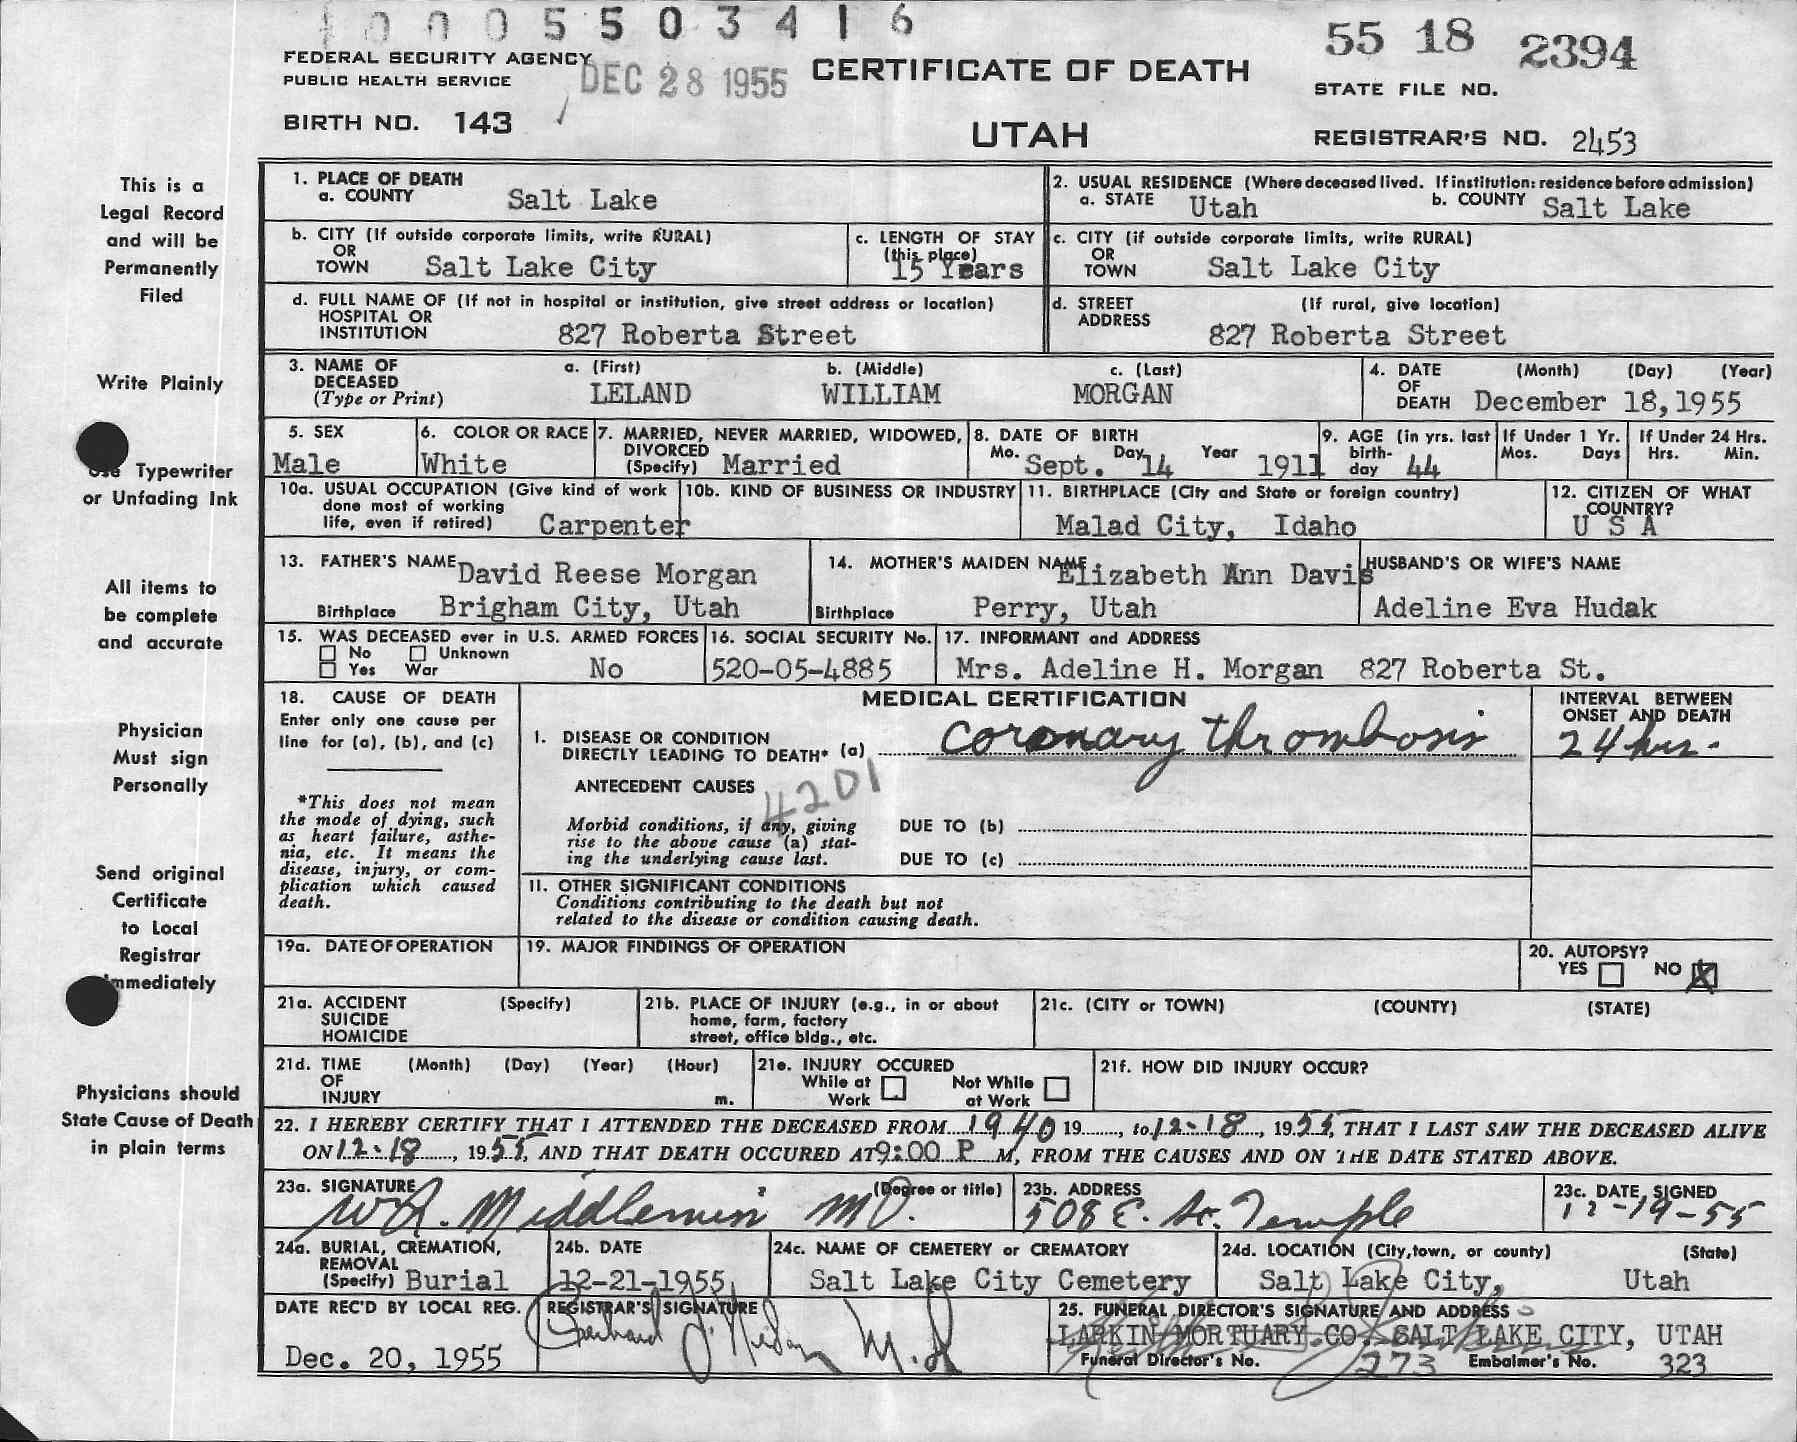 1 0 0 0 5 5 0 3 4 1 6
FEDERAL SECURITY AGENCY
PUBLIC HEALTH SERVICE
DEC 28 1955
CERTIFICATE OF DEATH
UTAH
55 18 2394
STATE FILE NO.
BIRTH NO. 143
REGISTRAR'S NO. 2453
This is a
Legal Record
and will be
Permanently
Filed
Write Plainly
Use Typewriter
or Unfading Ink
All items to
be complete
and accurate
Physician
Must sign
Personally
Send original
Certificate
to Local
Registrar
Immediately
Physicians should
State Cause of Death
in plain terms
1. PLACE OF DEATH
a. COUNTY Salt Lake
2. USUAL RESIDENCE (Where deceased lived. If institution: residence before admission)
a. STATE Utah b. COUNTY Salt Lake
b. CITY (If outside corporate limits, write RURAL)
OR
TOWN Salt Lake City
c. LENGTH OF STAY
(this place)
15 Years
c. CITY (if outside corporate limits, write RURAL)
OR
TOWN Salt Lake City
d. FULL NAME OF (If not in hospital or institution, give street address or location)
HOSPITAL OR
INSTITUTION 827 Roberta Street
d. STREET (If rural, give location)
ADDRESS
827 Roberta Street
3. NAME OF DECEASED
(Type or Print)
a. (First) b. (Middle) c. (Last)
LELAND WILLIAM MORGAN
4. DATE OF DEATH (Month) (Day) (Year)
December 18, 1955
5. SEX
Male
6. COLOR OR RACE
White
7. MARRIED, NEVER MARRIED, WIDOWED,
DIVORCED
(Specify) Married
8. DATE OF BIRTH
Mo. Day Year
Sept. 14 1911
9. AGE (in yrs. last
birth-
day 44
If Under 1 Yr.
Mos. Days
If Under 24 Hrs.
Hrs. Min.
10a. USUAL OCCUPATION (Give kind of work
done most of working
life, even if retired) Carpenter
10b. KIND OF BUSINESS OR INDUSTRY
11. BIRTHPLACE (City and State or foreign country)
Malad City, Idaho
12. CITIZEN OF WHAT
COUNTRY?
U S A
13. FATHER'S NAME David Reese Morgan
Birthplace Brigham City, Utah
14. MOTHER'S MAIDEN NAME Elizabeth Ann Davis
Birthplace Perry, Utah
HUSBAND'S OR WIFE'S NAME
Adeline Eva Hudak
15. WAS DECEASED ever in U.S. ARMED FORCES
No Unknown
Yes War No
16. SOCIAL SECURITY No.
520-05-4885
17. INFORMANT and ADDRESS
Mrs. Adeline H. Morgan 827 Roberta St.
18. CAUSE OF DEATH
Enter only one cause per
line for (a), (b), and (c)
*This does not mean
the mode of dying, such
as heart failure, asthe-
nia, etc. It means the
disease, injury, or com-
plication which caused
death.
MEDICAL CERTIFICATION
INTERVAL BETWEEN
ONSET AND DEATH
I. DISEASE OR CONDITION
DIRECTLY LEADING TO DEATH* (a) coronary thrombosis 24 hrs.
ANTECEDENT CAUSES
4201
Morbid conditions, if any, giving
rise to the above cause (a) stat-
ing the underlying cause last.
DUE TO (b)
DUE TO (c)
II. OTHER SIGNIFICANT CONDITIONS
Conditions contributing to the death but not
related to the disease or condition causing death.
19a. DATE OF OPERATION
19. MAJOR FINDINGS OF OPERATION
20. AUTOPSY?
YES NO X
21a. ACCIDENT (Specify)
SUICIDE
HOMICIDE
21b. PLACE OF INJURY (e.g., in or about
home, farm, factory
street, office bldg., etc.
21c. (CITY or TOWN) (COUNTY) (STATE)
21d. TIME (Month) (Day) (Year) (Hour)
OF
INJURY m.
21e. INJURY OCCURED
While at Work Not While at Work
21f. HOW DID INJURY OCCUR?
22. I HEREBY CERTIFY THAT I ATTENDED THE DECEASED FROM 1940 19......, to 12-18, 1955, THAT I LAST SAW THE DECEASED ALIVE
ON 12-18, 1955, AND THAT DEATH OCCURED AT 9:00 P M, FROM THE CAUSES AND ON THE DATE STATED ABOVE.
23a. SIGNATURE (Degree or title)
Middlemin MD.
23b. ADDRESS
508 E. So. Temple
23c. DATE SIGNED
12-19-55
24a. BURIAL, CREMATION,
REMOVAL
(Specify) Burial
24b. DATE
12-21-1955
24c. NAME OF CEMETERY or CREMATORY
Salt Lake City Cemetery
24d. LOCATION (City, town, or county) (State)
Salt Lake City, Utah
DATE REC'D BY LOCAL REG.
Dec. 20, 1955
REGISTRAR'S SIGNATURE
M.D
25. FUNERAL DIRECTOR'S SIGNATURE AND ADDRESS
LARKIN MORTUARY CO. SALT LAKE CITY, UTAH
Funeral Director's No. 273 Embalmer's No. 323